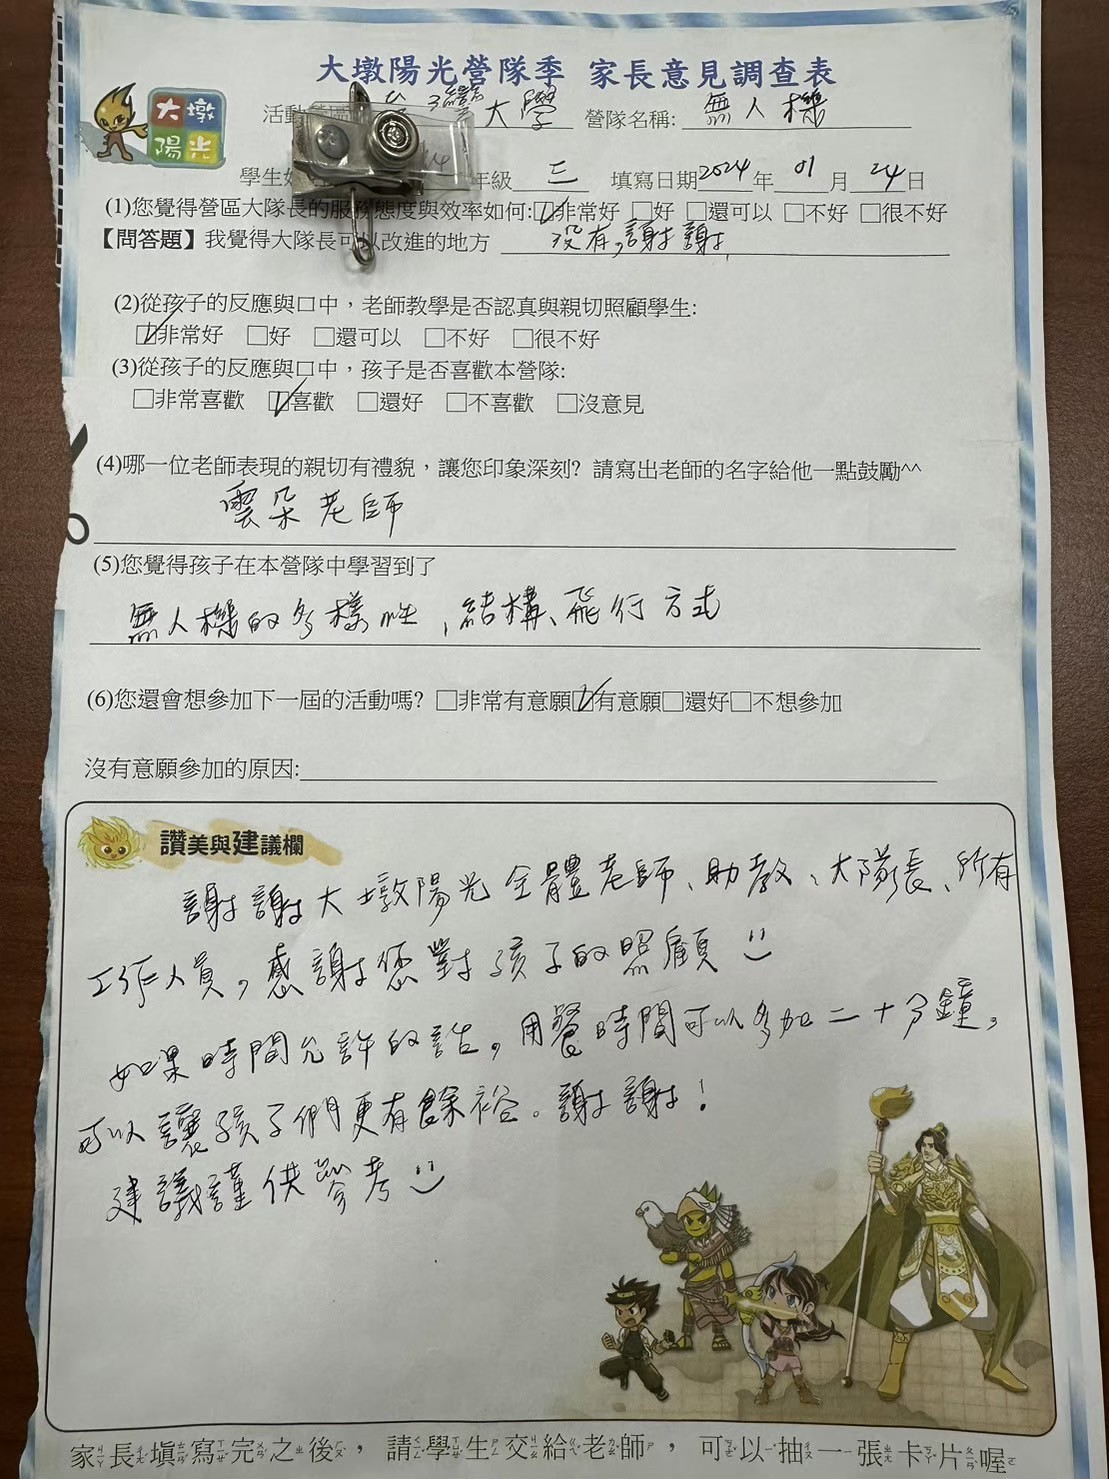 大墩陽光營隊季 家長意見調查表
大墩
陽光
活動 大學 營隊名稱: 無人機
學生 年級 三 填寫日期 2024 年 01 月 24 日
(1)您覺得營區大隊長的服務態度與效率如何:☑非常好 □好 □還可以 □不好 □很不好
【問答題】我覺得大隊長可以改進的地方 沒有,謝謝
(2)從孩子的反應與口中，老師教學是否認真與親切照顧學生:
☑非常好 □好 □還可以 □不好 □很不好
(3)從孩子的反應與口中，孩子是否喜歡本營隊:
□非常喜歡 ☑喜歡 □還好 □不喜歡 □沒意見
(4)哪一位老師表現的親切有禮貌，讓您印象深刻? 請寫出老師的名字給他一點鼓勵^^
雲朵老師
(5)您覺得孩子在本營隊中學習到了
無人機的多樣性、結構、飛行方式
(6)您還會想參加下一屆的活動嗎? □非常有意願☑有意願□還好□不想參加
沒有意願參加的原因:
讚美與建議欄
謝謝大墩陽光全體老師、助教、大隊長、所有
工作人員,感謝您對孩子的照顧
如果時間允許的話,用餐時間可以多加二十分鐘,
可以讓孩子們更有餘裕。謝謝!
建議謹供參考
家長填寫完之後，請學生交給老師，可以抽一張卡片喔